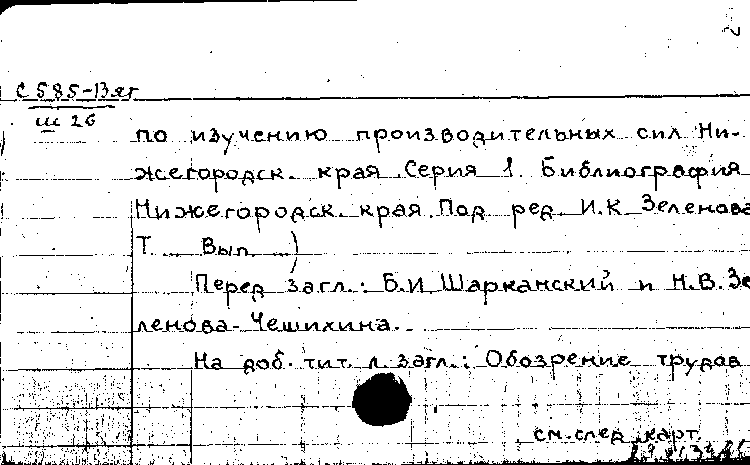 2
С 585-13яг
Ш 26
по изучению производительных сил Ни-
жегородск. края. Серия 1. Библиография
Нижегородск. края. Под ред. И.К. Зеленова
Т. Вып. )
Перед загл.: Б.И. Шарканский и Н.В. Зе
ленова-Чешихина.
На доб. тит. л. загл.: Обозрение трудов
см. след. карт.